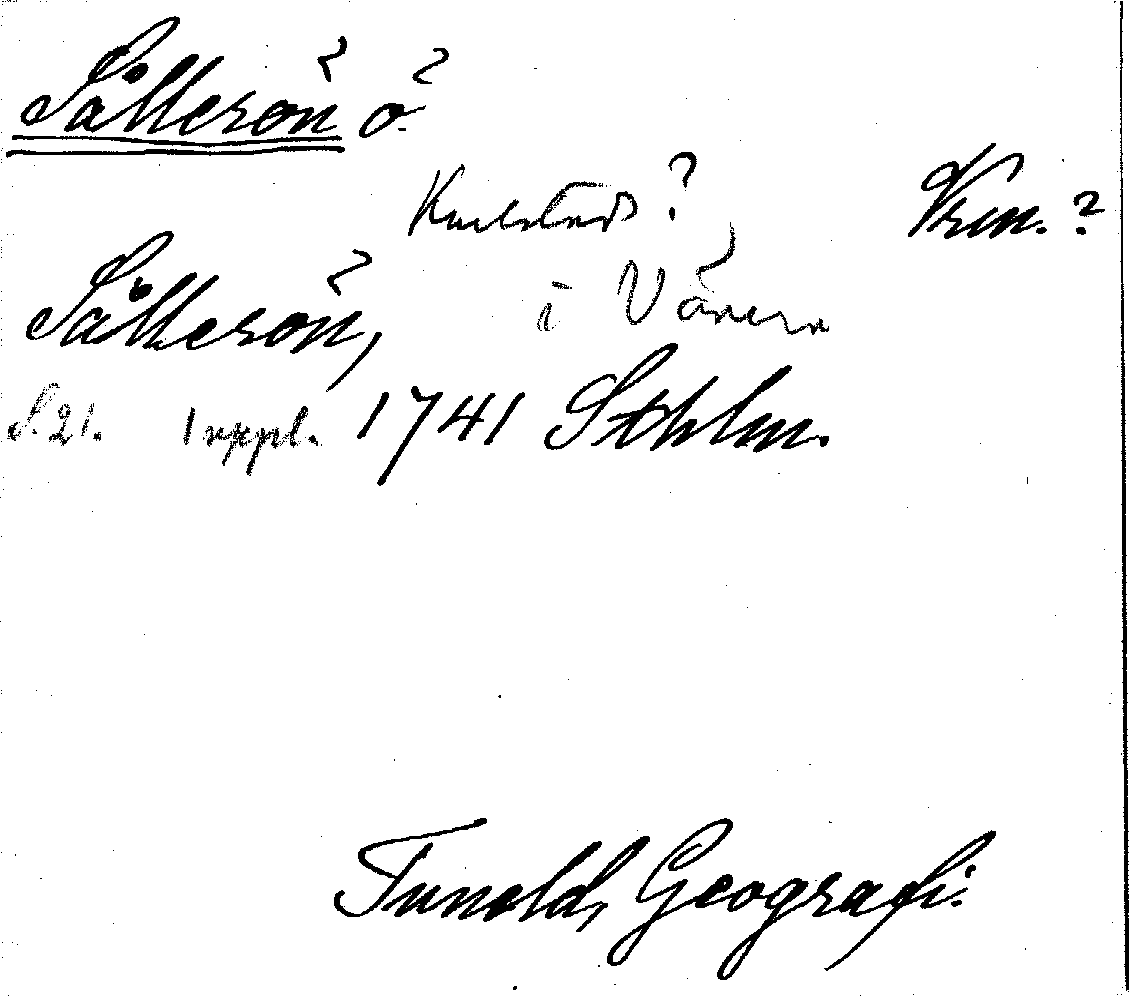 Sålterön ö.
Karlstad? Vrm.?
Sålterön, i Vänern
S. 21. 1 uppl. 1741 Sthlm.
Tuneld, Geografi.